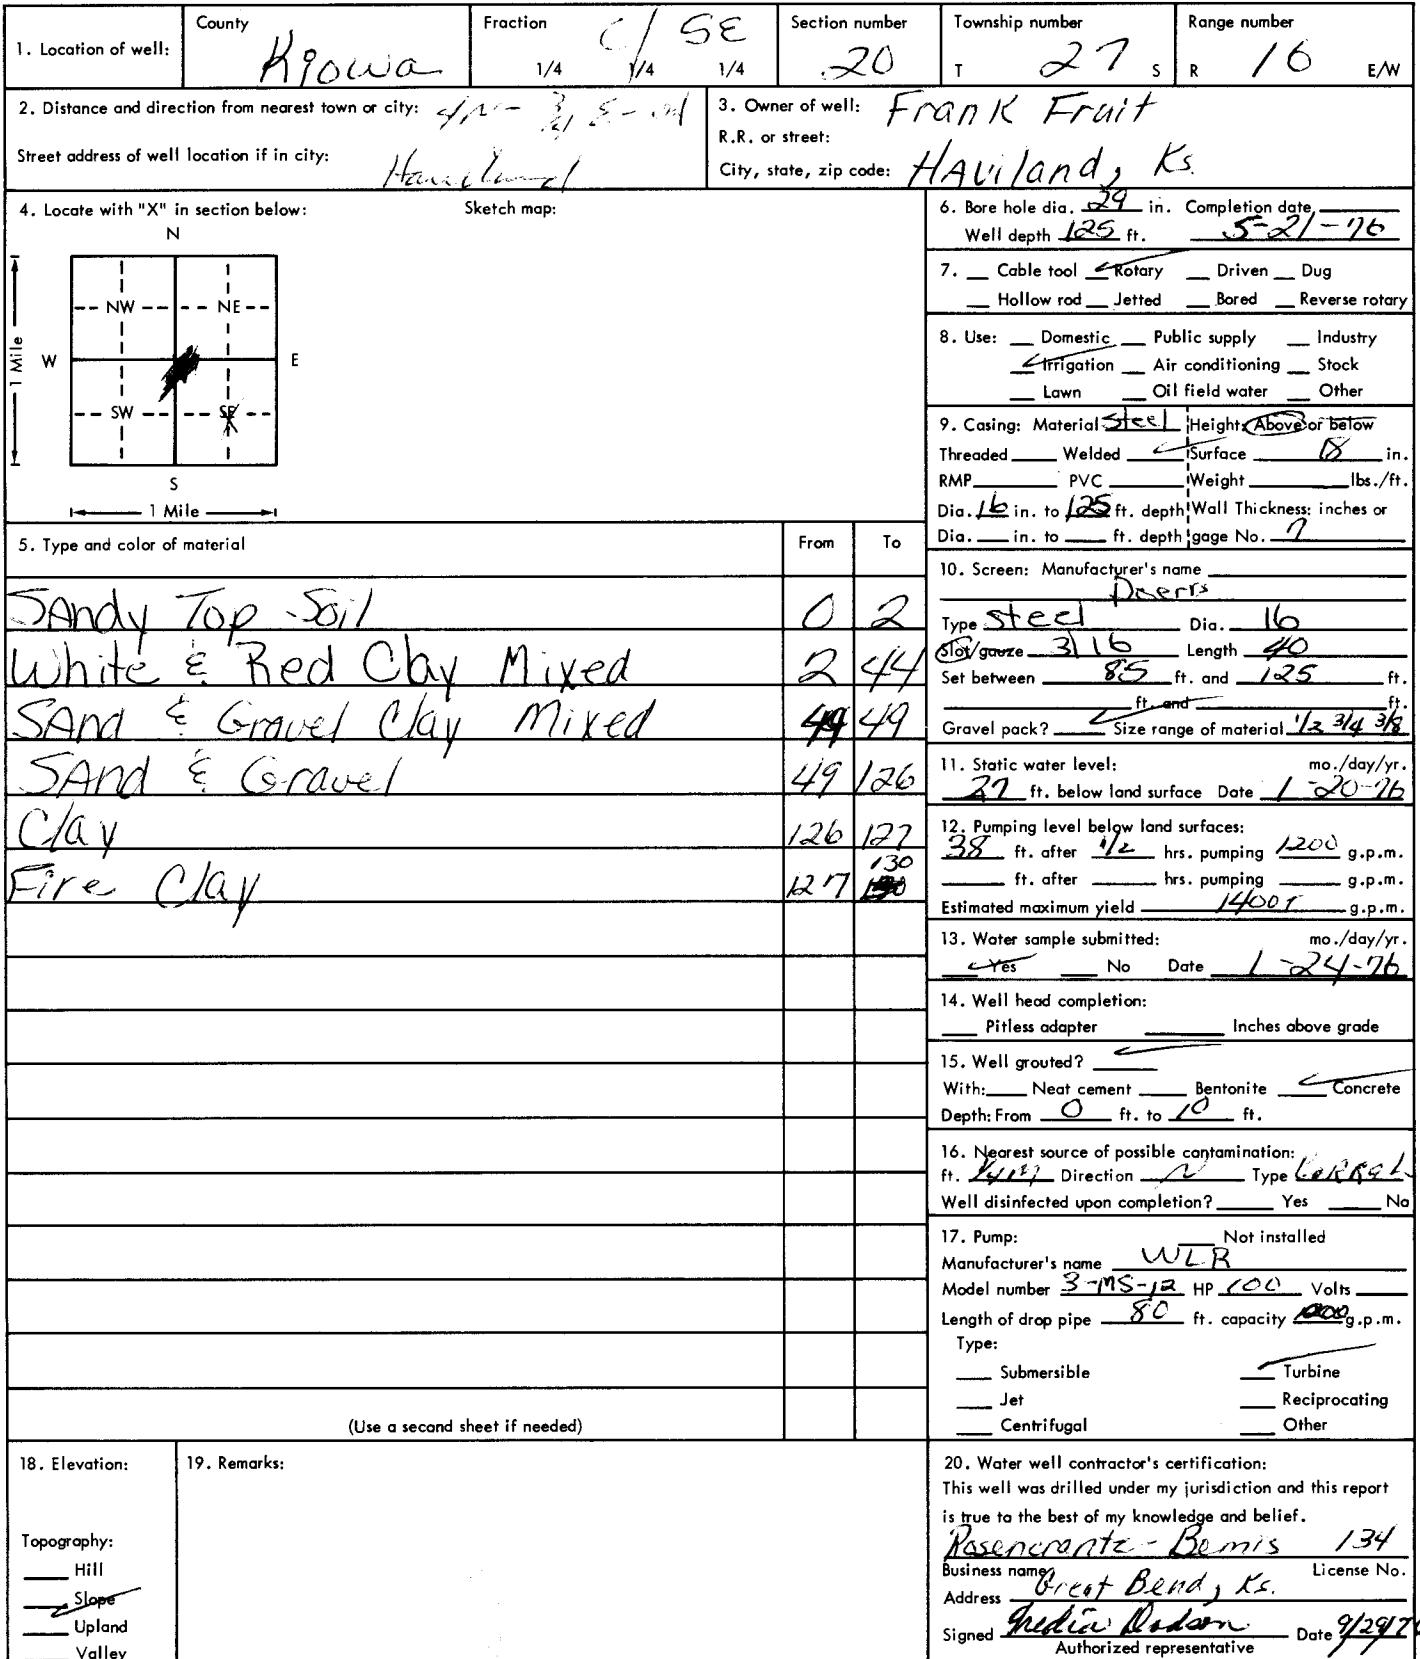 1. Location of well:
County
Kiowa
Fraction
C/ SE
1/4 1/4 1/4
Section number
20
Township number
T 27 S
Range number
R 16 E/W
2. Distance and direction from nearest town or city: 4N- 3/4 E-
Street address of well location if in city:
Haviland
3. Owner of well: Frank Fruit
R.R. or street:
City, state, zip code: HAViland, Ks.
4. Locate with "X" in section below: Sketch map:
N
NW NE
W E
SW SE
X
S
1 Mile
1 Mile
5. Type and color of material From To
SAndy Top Soil 0 2
White & Red Clay Mixed 2 44
SAnd & Gravel Clay Mixed 44 49
SAnd & Gravel 49 126
Clay 126 127
Fire Clay 127 130
(Use a second sheet if needed)
6. Bore hole dia. 29 in. Completion date
Well depth 125 ft. 5-21-76
7. Cable tool ✓ Rotary Driven Dug
Hollow rod Jetted Bored Reverse rotary
8. Use: Domestic Public supply Industry
✓ Irrigation Air conditioning Stock
Lawn Oil field water Other
9. Casing: Material Steel Height: Above or below
Threaded Welded ✓ Surface 18 in.
RMP PVC Weight lbs./ft.
Dia. 16 in. to 125 ft. depth Wall Thickness: inches or
Dia. in. to ft. depth gage No. 7
10. Screen: Manufacturer's name
Doerrs
Type Steel Dia. 16
Slot/gauze 3/16 Length 40
Set between 85 ft. and 125 ft.
ft. and ft.
Gravel pack? ✓ Size range of material 1/2 3/4 3/8
11. Static water level: mo./day/yr.
27 ft. below land surface Date 1-20-76
12. Pumping level below land surfaces:
38 ft. after 1/2 hrs. pumping 1200 g.p.m.
ft. after hrs. pumping g.p.m.
Estimated maximum yield 1400+ g.p.m.
13. Water sample submitted: mo./day/yr.
✓ Yes No Date 1-24-76
14. Well head completion:
Pitless adapter Inches above grade
15. Well grouted? ✓
With: Neat cement Bentonite ✓ Concrete
Depth: From 0 ft. to 10 ft.
16. Nearest source of possible contamination:
ft. 1/4 M Direction N Type CoRRaL
Well disinfected upon completion? Yes No
17. Pump: Not installed
Manufacturer's name WLR
Model number 3-MS-12 HP 100 Volts
Length of drop pipe 80 ft. capacity g.p.m.
Type:
Submersible ✓ Turbine
Jet Reciprocating
Centrifugal Other
18. Elevation:
Topography:
Hill
✓ Slope
Upland
Valley
19. Remarks:
20. Water well contractor's certification:
This well was drilled under my jurisdiction and this report
is true to the best of my knowledge and belief.
Rosencrantz-Bemis 134
Business name License No.
Address Great Bend, Ks.
Signed Dodson Date 9/29/76
Authorized representative